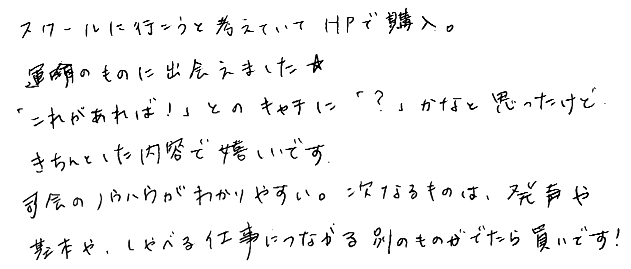 スクールに行こうと考えていて HPで購入。
運命のものに出会えました☆
「これがあれば!」とのキャチに「?」かなと思ったけど
きちんとした内容で嬉しいです
司会のノウハウがわかりやすい。次なるものは、発声や
基本や、しゃべる仕事につながる別のものがでたら買いです!